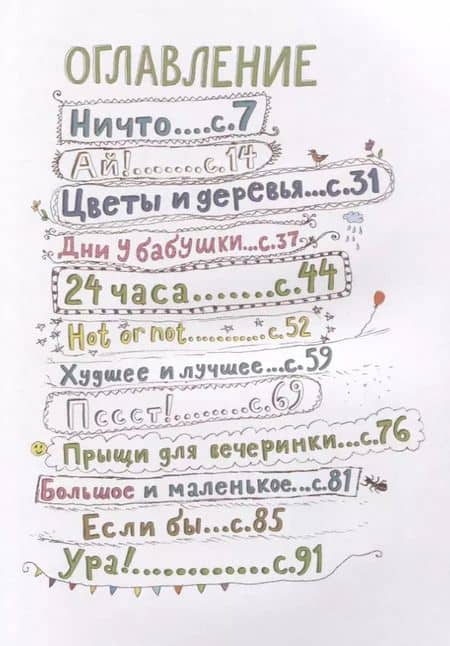 ОГЛАВЛЕНИЕ
Ничто....с.7
Ай!........с.14
Цветы и деревья...с.31
Дни у бабушки...с.37
24 часа.......с.44
Hot or not...........с.52
Худшее и лучшее...с.59
Пссст!........с.69
Прыщи для вечеринки...с.76
Большое и маленькое...с.81
Если бы...с.85
Ура!............с.91